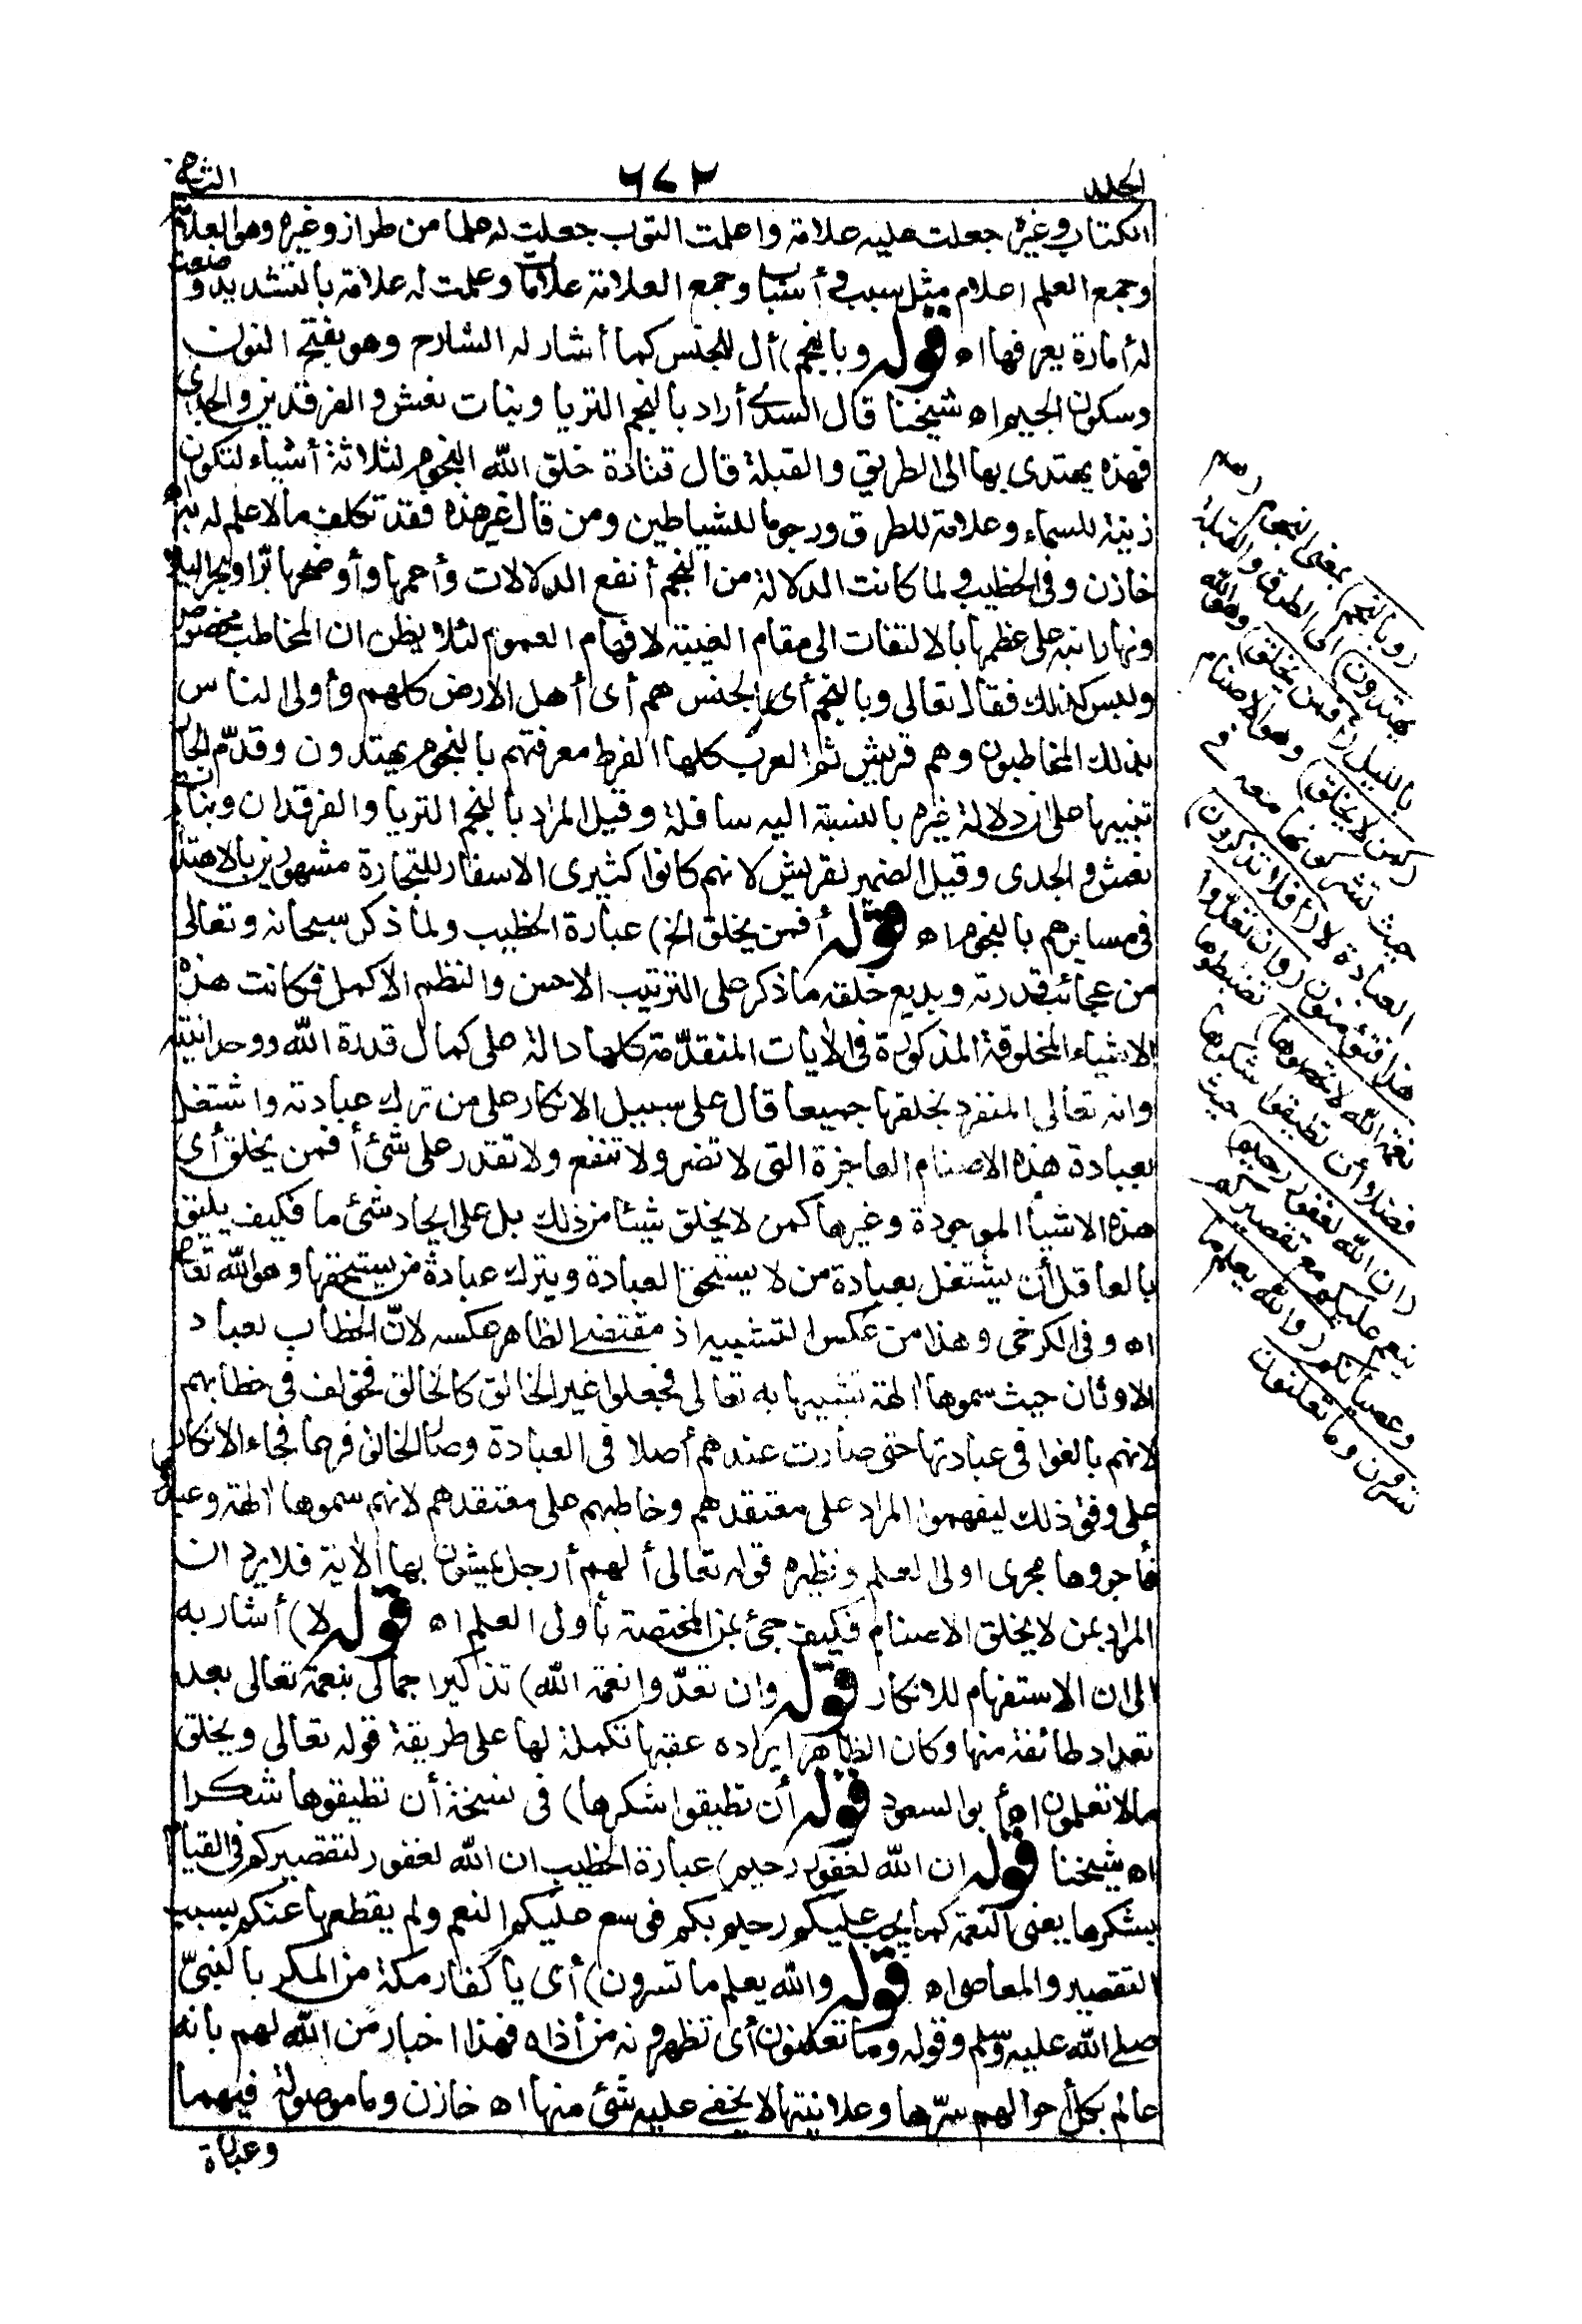 الجلد
٦٧٢
الثانى
الكتاب وغيره جعلت عليه علامة واعلمت الثوب جعلت له علما من طراز وغيره وهو العلامة
وجمع العلم اعلام مثل سبب وأسباب وجمع العلامة علامات وعلمت له علامة بالتشديد وضعت
له أمارة يعرفها اه قوله وبالنجم) أل للجنس كما أشار له الشارح وهو بفتح النون
وسكون الجيم اه شيخنا قال السدى أراد بالنجم الثريا وبنات نعش والفرقدين والجدى
فهذه يهتدى بها الى الطريق والقبلة قال قتادة خلق الله النجوم لثلاثة أشياء لتكون
زينة للسماء وعلامة للطرق ورجوما للشياطين ومن قال غير هذه فقد تكلف مالا علم له به اه
خازن وفى الخطيب ولما كانت الدلالة من النجم أنفع الدلالات وأعمها وأوضحها برّا وبحرا ليلا
ونهارا نبه على عظمها بالالتفات الى مقام الغيبة لافهام العموم لئلا يظن ان المخاطب مخصوص
وليس كذلك فقال تعالى وبالنجم أى الجنس هم أى أهل الارض كلهم وأولى الناس
بذلك المخاطبون وهم قريش ثم العرب كلها لفرط معرفتهم بالنجوم يهتدون وقدّم الجار
تنبيها على ان دلالة غيره بالنسبة اليه سافلة وقيل المراد بالنجم الثريا والفرقدان وبنات
نعش والجدى وقيل الضمير لقريش لانهم كانوا كثيرى الاسفار للتجارة مشهورين بالاهتداء
فى مسايرهم بالنجوم اه قوله أفمن يخلق الخ) عبارة الخطيب ولما ذكر سبحانه وتعالى
من عجائب قدرته وبديع خلقه ما ذكر على الترتيب الاحسن والنظم الاكمل فكانت هذه
الاشياء المخلوقة المذكورة فى الآيات المتقدّمة كلها دالة على كمال قدرة الله ووحدانيته
وانه تعالى المنفرد بخلقها جميعا قال على سبيل الانكار على من ترك عبادته واشتغل
بعبادة هذه الاصنام العاجزة التى لا تضر ولا تنفع ولا تقدر على شئ أفمن يخلق أى
هذه الاشياء الموجودة وغيرها كمن لا يخلق شيئا من ذلك بل على ايجاد شئ ما فكيف يليق
بالعاقل أن يشتغل بعبادة من لا يستحق العبادة ويترك عبادة من يستحقها وهو الله تعالى
اه وفى الكرخى وهذا من عكس التشبيه اذ مقتضى الظاهر عكسه لانّ الخطاب لعباد
الاوثان حيث سموها آلهة تشبيها به تعالى فجعلوا غير الخالق كالخالق فخولف فى خطابهم
لانهم بالغوا فى عبادتها حتى صارت عندهم أصلا فى العبادة وصار الخالق فرعا فجاء الانكار
على وفق ذلك ليفهموا المراد على معتقدهم وخاطبهم على معتقدهم لانهم سموها آلهة وعبدوها
فأجروها مجرى اولى العلم ونظيره قوله تعالى ألهم أرجل يمشون بها الآية فلا يرد ان
المراد بمن لا يخلق الاصنام فكيف جئ بمن المختصة بأولى العلم اه قوله لا) أشار به
الى ان الاستفهام للانكار قوله وان تعدّوا نعمة الله) تذكير اجمالى بنعمة تعالى بعد
تعداد طائفة منها وكان الظاهر ايراده عقبها تكملة لها على طريقة قوله تعالى ويخلق
مالا تعلمون اه أبو السعود قوله أن تطيقوا شكرها) فى نسخة أن تطيقوها شكرا
اه شيخنا قوله ان الله لغفور رحيم) عبارة الخطيب ان الله لغفور لتقصيركم فى القيام
بشكرها يعنى النعمة كما يجب عليكم رحيم بكم فوسع عليكم النعم ولم يقطعها عنكم بسبب
التقصير والمعاصى اه قوله والله يعلم ما تسرون) أى يا كفار مكة من المكر بالنبىّ
صلى الله عليه وسلم وقوله وما تعلنون أى تظهرونه من أذاه فهذا اخبار من الله لهم بأنه
عالم بكل أحوالهم سرّها وعلانيتها لا يخفى عليه شئ منها اه خازن وما موصولة فيهما
وعبارة
(وبالنجم) بمعنى النجوم (هم
يهتدون) الى الطرق والقبلة
بالليل (أفمن يخلق) وهو الله
(كمن لا يخلق) وهو الاصنام
حيث تشركونها معه فى
العبادة لا (أفلا تذكرون)
هذا فتؤمنون (وان تعدّوا
نعمة الله لا تحصوها) تضبطوها
فضلا أن تطيقوا شكرها
(ان الله لغفور رحيم) حيث
ينعم عليكم مع تقصيركم
وعصيانكم (والله يعلم ما
تسرون وما تعلنون